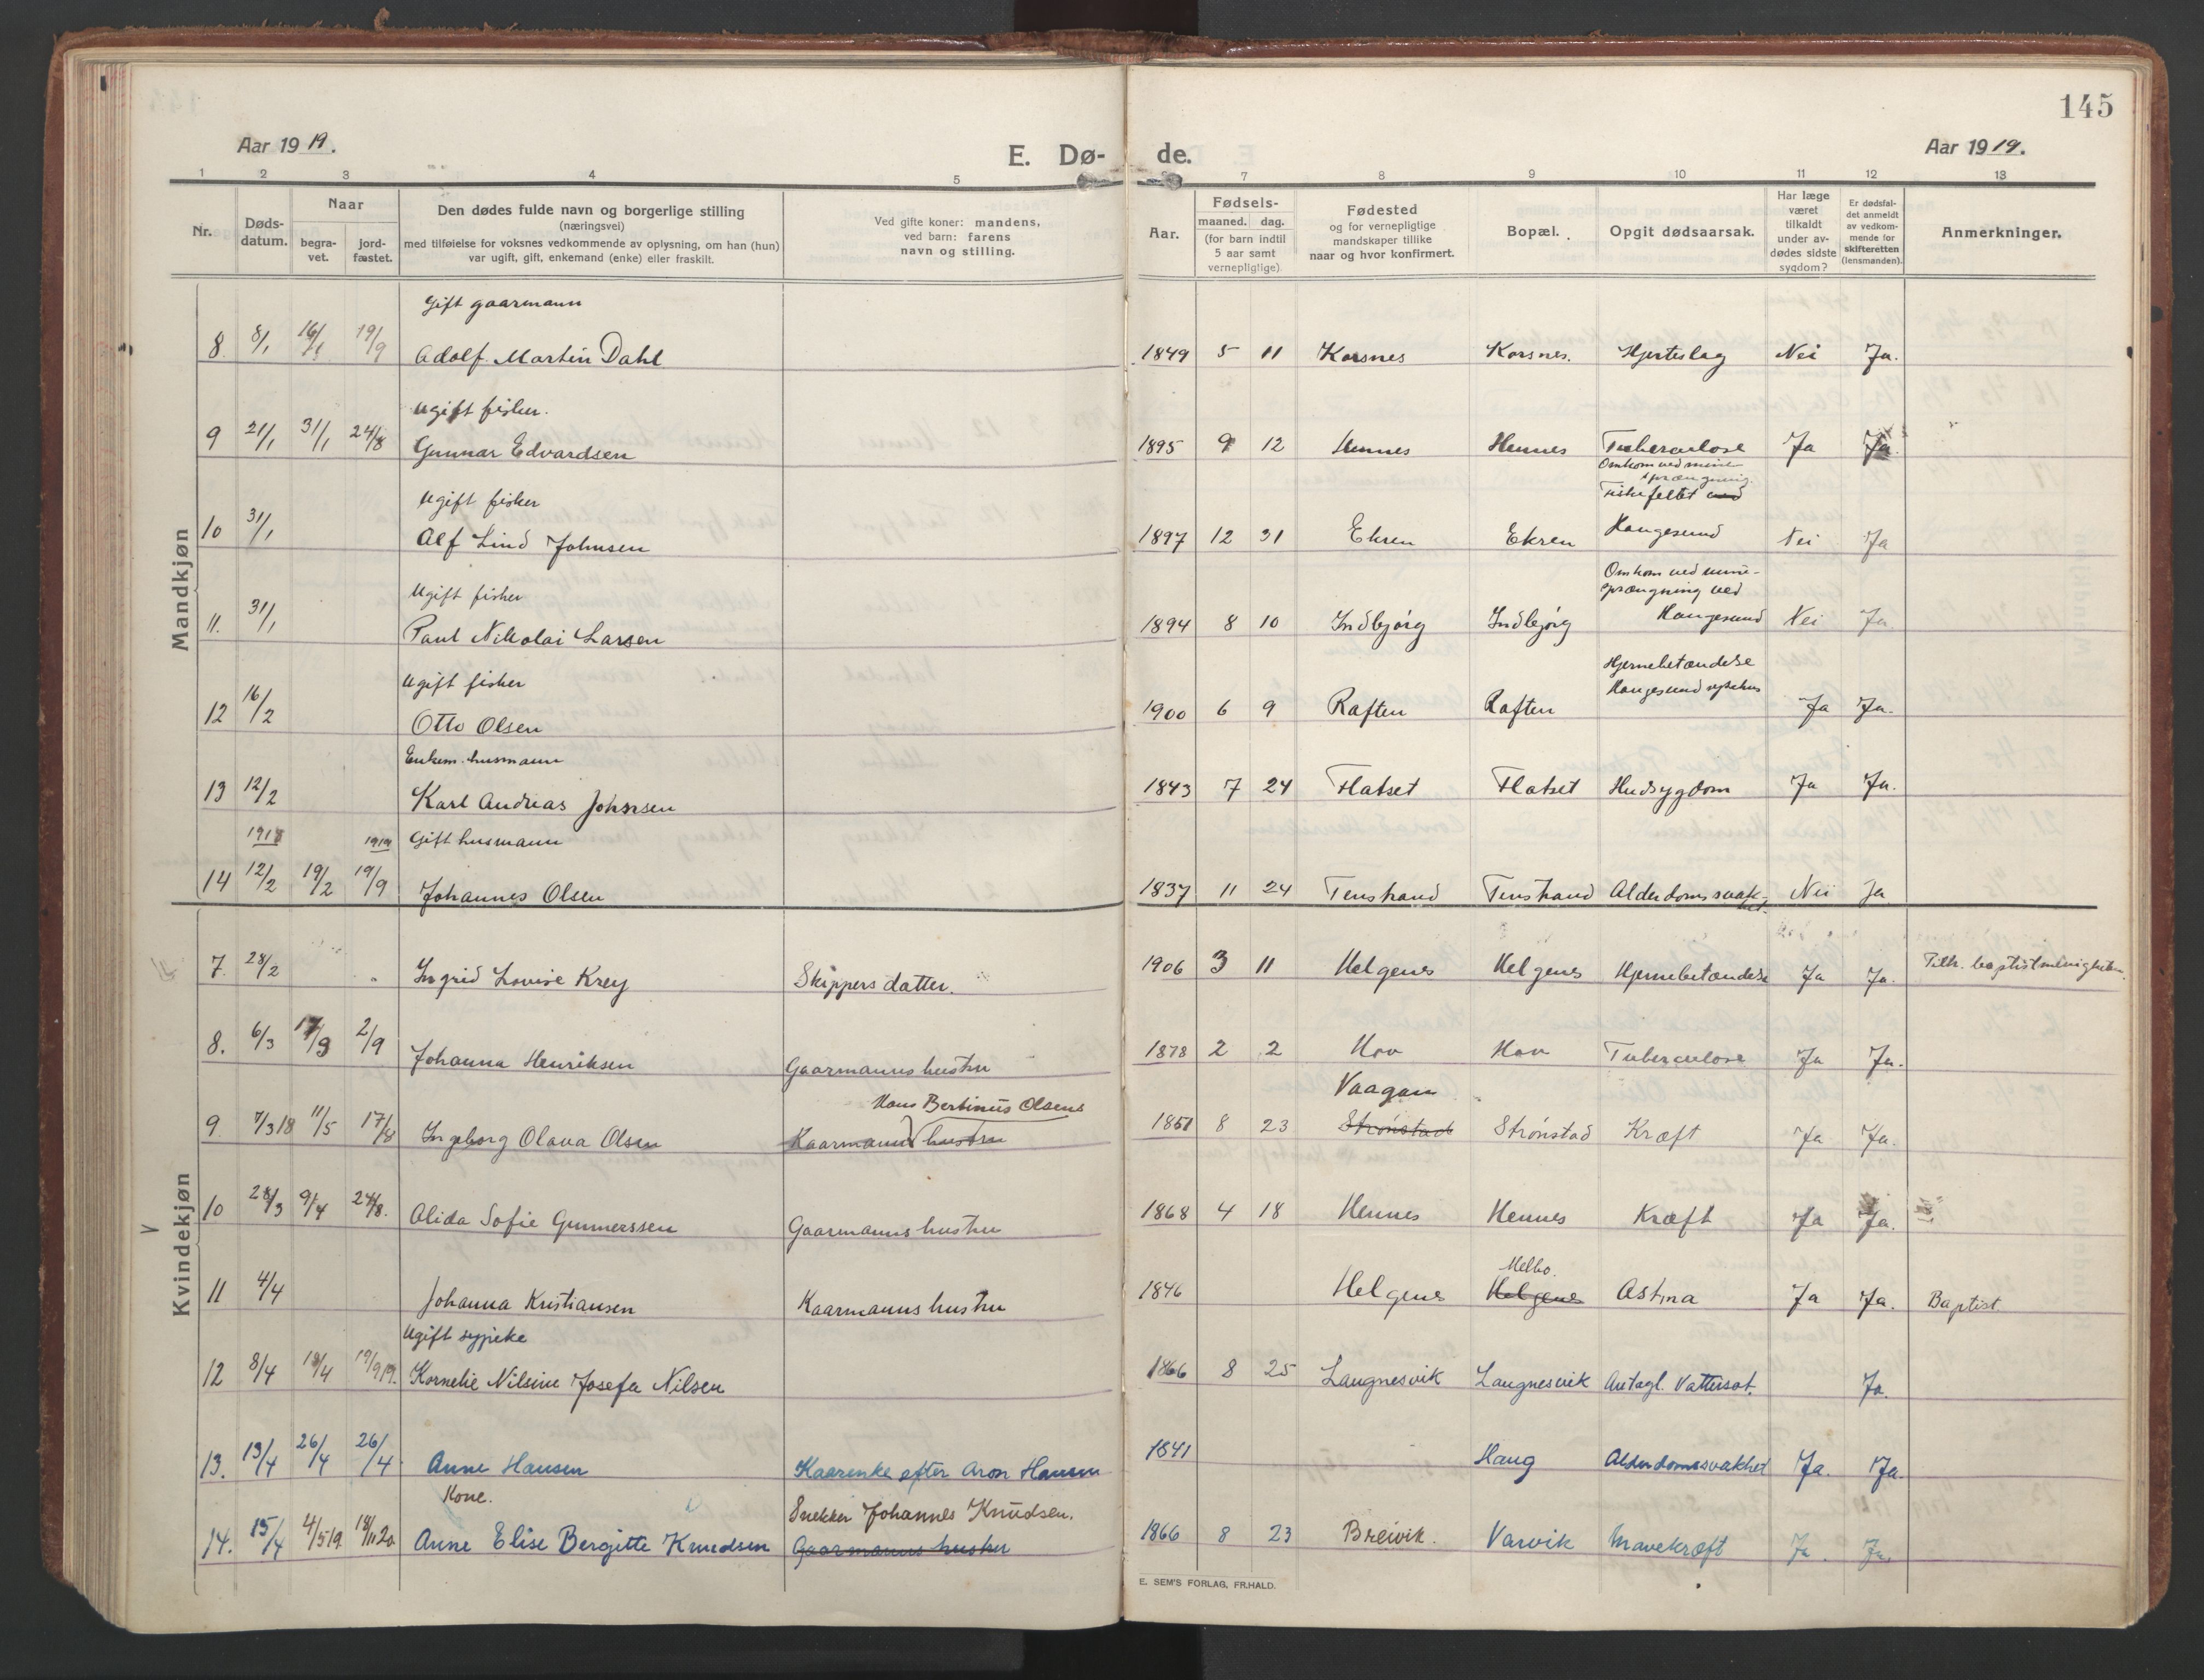 145
Aar 1919.
E. Dø- de.
Aar 1919.
1 2 3 4 5 7 8 9 10 11 12 13
Nr.
Døds-
datum.
Naar
begra-
vet.
jord-
fæstet.
Den dødes fulde navn og borgerlige stilling
(næringsvei)
med tilføielse for voksnes vedkommende av oplysning, om han (hun)
var ugift, gift, enkemand (enke) eller fraskilt.
Ved gifte koner: mandens,
ved barn: farens
navn og stilling.
Aar.
Fødsels-
maaned. dag.
(for barn indtil
5 aar samt
vernepligtige)
Fødested
og for vernepligtige
mandskaper tillike
naar og hvor konfirmert.
Bopæl.
Opgit dødsaarsak.
Har læge
været
tilkaldt
under av-
dødes sidste
sygdom?
Er dødsfal-
det anmeldt
av vedkom-
mende for
skifteretten
(lensmanden).
Anmerkninger.
Mandkjøn
Gift gaarmann
8. 8/1 19/9 Adolf Martin Dahl 1849 5 11 Korsnes Korsnes. Hjerteslag Nei Ja.
Ugift fisker.
9 21/1 31/1 24/8 Gunnar Edvardsen 1895 9 12 Hennes Hennes Tuberculose Ja Ja.
Omkom ved mine-
sprængning.
Ugift fisker Fiskefeltet ved
10 31/1 Alf Lind Johnsen 1897 12 31 Ekren Ekren Haugesund Nei Ja
Omkom ved mine-
Ugift fisker sprængning ved
11. 31/1 Paul Nikolai Larsen 1894 8 10 Indbjørg Indbjørg Haugesund Nei Ja
Hjernebetændelse
Ugift fisker Haugesund sykehus
12 16/2 Otto Olsen 1900 6 9 Raften Raften Ja Ja.
Enkem. husmann
13 12/2 Karl Andreas Johnsen 1843 7 24 Flatset Flatset Hudsygdom Ja Ja.
1918 1919 Gift husmann
14 12/2 19/2 19/9 Johannes Olsen 1837 11 24 Tenstrand Tenstrand Alderdomssvak-
het. Nei Ja
Kvindekjøn
7. 28/2 Ingrid Lovise Krey Skippers datter. 1906 3 11 Helgenes Helgenes Hjernebetændelse Ja Ja. Tilh. baptistmenigheten.
8. 6/3 2/9 Johanna Henriksen Gaarmanns hustru 1878 2 2 Hov Hov Tuberculose Ja Ja.
Hans Bertinius Olsens Vaagan
9 7/3 18 11/5 17/8 Ingeborg Olava Olsen Kaarmanns hustru 1851 8 23 Strønstad Strønstad Kræft Ja Ja.
10 28/3 9/4 24/8. Alida Sofie Gunnerssen Gaarmanns hustru 1868 4 18 Hennes Hennes Kræft Ja Ja.
Melbo.
11 4/4 Johanna Kristiansen Kaarmanns hustru 1846 Helgenes Helgenes Astma Ja Ja. Baptist.
Ugift sypike
12 8/4 18/4 19/9 19. Kornelie Nilsine Josefa Nilsen 1866 8 25 Langnesvik Langnesvik Antagl. Vattersot. Ja.
13. 13/4 26/4 26/4 Anne Hansen Kaarenke efter Aron Hansen 1841 Haug Alderdomssvakhet Ja. Ja.
Kone. Snekker Johannes Knudsen.
14. 15/4 4/5 19 18/11 20 Anne Elise Bergitte Knudsen Gaarmanns hustru 1866 8 23 Breivik. Varvik Mavekræft Ja. Ja.
E. SEM'S FORLAG, FR.HALD.